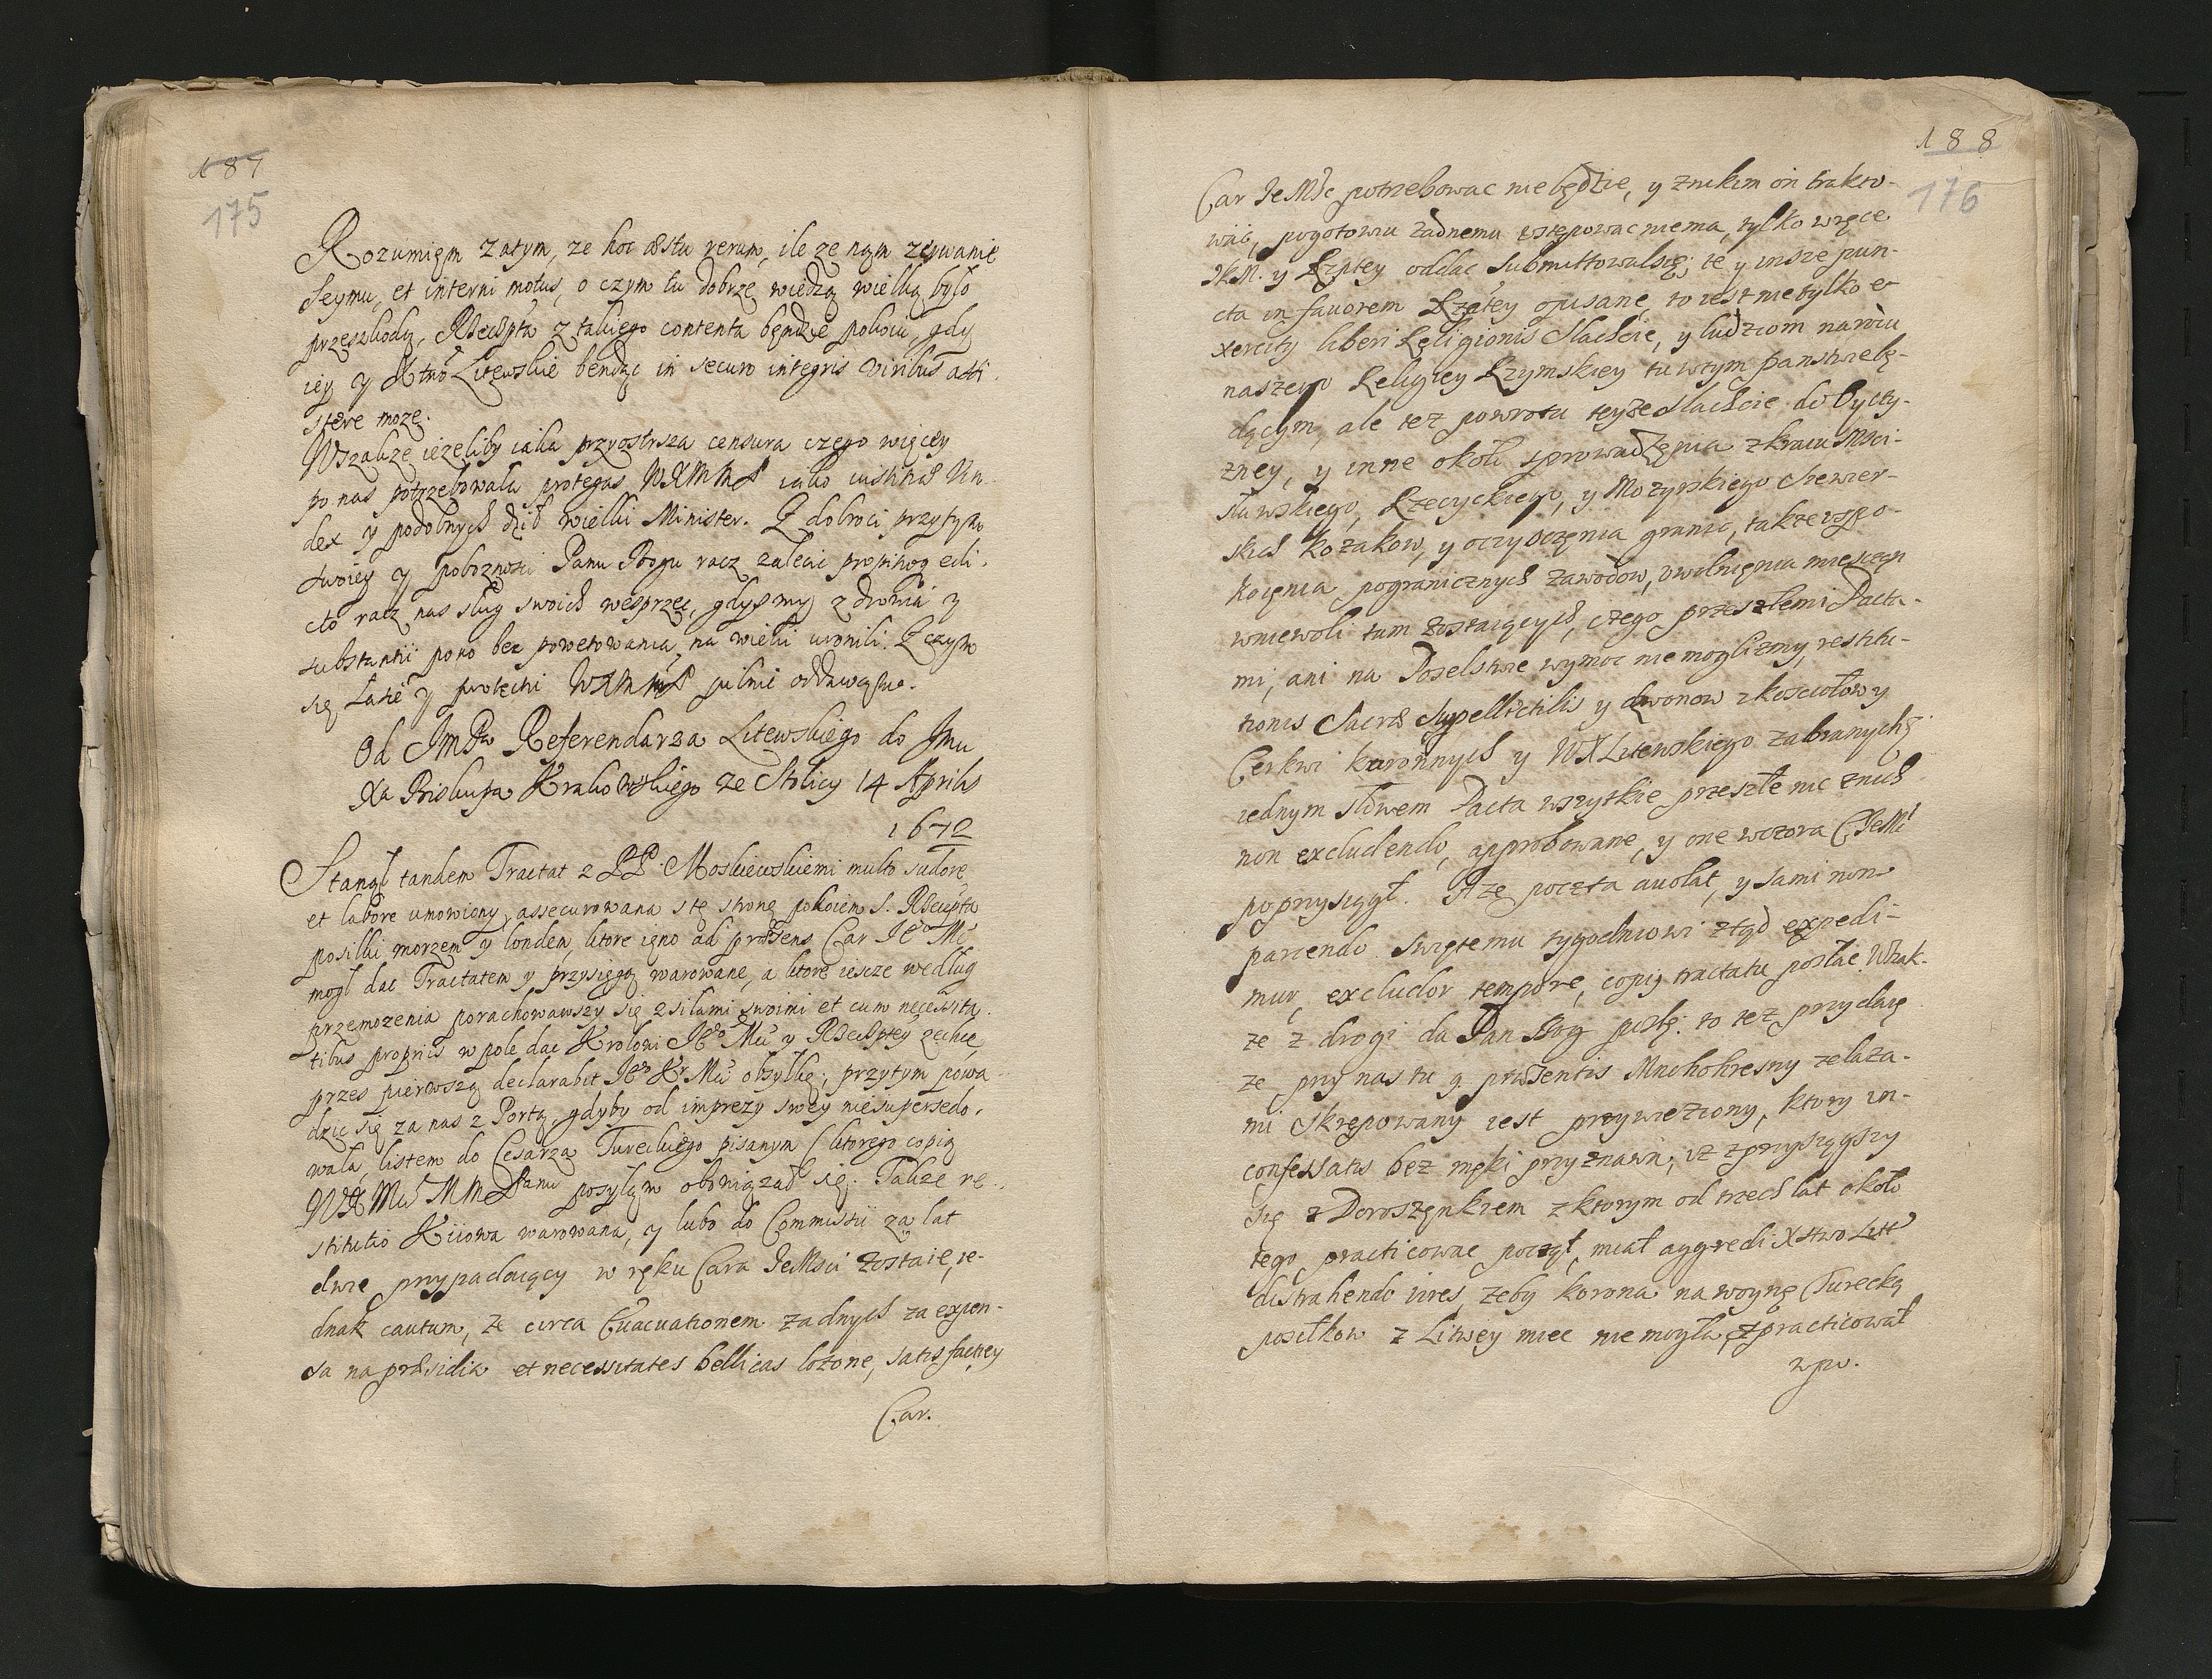 187
175
Rozumiem zatym, ze hoc æstu rerum, ile ze nam zerwanie
Seymu, et interni motus, o czym tu dobrze wiedzą wielką było
przeszkodą, Rzeczpta z takiego contenta bęndzie pokoiu, gdy
iey y Xtwo Litewskie bendąc in securo integris viribus assi-
stere moze.
Wszakze iezeliby iaka przyostrsza censura czego więcey
po nas potrzebowała protegas WXMMP iako iustitiæ Vin-
dex y podobnych dził wielki Minister. Z dobroci przytym
swoiey y poboznosci Panu Bogu racz zalecic
cto racz nas sług swoich wesprzec, gdysmy z drowia y
substantii pono bez powetowania, na wieki uronili. Z czym
się Łasce y protectii WXMMP pilnie oddawszy
Od JmPa Referendarza Litewskiego do Jmci
Xa Biskupa Krakowskiego ze Stolicy 14 Aprilis
1672
Stanął tanden Tractat z PP. Moskiewskiemi multo sudore
et labore umowiony, assecurowana z tę stronę pokoiem S. Rzeczpta
posilki morzem y londem, ktore ieno ad præsens Car JEo Mć
mogł dac Tractatem y przysięgą warowane, a ktore ieszcze według
przemozenia porachowawszy się z siłami swoimi et cum necessita-
tibus propriis w pole dac Krolowi JEo Mci y Rzeczptey zechce,
przez pierwszą declarabit JEo Kr Mci obsyłkę; przytym powa-
dzic się za nas z Portą, gdyby od imprezy swey niesupersedo-
wała, listem do Cesarza Tureckiego pisanym (ktorego copią
WX Mci MMPanu posyłąm obowiązał się. Takze re-
stitutio Kiiowa warowana, y lubo do Commissii za lat
dwie przypadaiący w ręku Cara JeMsci zostaie, ie-
dnak cautum, ze circa Evacuationem zadnych za expen-
sa na præsidia et necessitates bellicas łożone, satisfactiey
Car.
188
176
Car JeMSc potrzebowac niebędzie, y znikim on trakto-
wać, pogotowiu żadnemu vstępowac niema, tylko wręce
JKM. y Rzptey oddac submittowałsię; te y insze pun-
cta in fauorem Rzptey opisane, to iest nietylko e-
xercity liberi Religionis Slachcie, y ludziom narodu
naszego Religiey Rzymskiey tu wtym panstwie bę-
dącym, ale tez powrotu teyze Slachcie do Oyczy-
zney, y inne około sprowadzenia zkraiu Msci-
sławskiego, Rzeczyckiego, y Mozyrskiego Siewier-
skich Kozakow, y oczysczenia granic, takze vspo-
koienia pogranicznych zawodow, vwolnienia
wniewoli tam zostaiących, czego przeszłemi Pacta-
mi, ani na Poselstwie wymoc nie moglizmy, restitu-
tionis Sacræ Supellectilis y dzwonow zkosciołow y
Cerkwi koronnych y WXLitewskiego zabranych
iednym słowem Pacta wszytkie przeszłe nic znich
non excludendo, approbowane, y one wczora CJeMć
poprzysiągł. A ze poczta auolat, y sami non
parcendo swiętemu tygodniowi ztąd expedi-
mur, excludor tempore, copią tractatu posłac. Wszak-
ze z drogi da Pan Bog poszlę; to tez przydaię
ze przy nas tu 9 præsentis Mnohohresny zelaza-
mi skrępowany iest przywieziony, ktory in-
confessatis bez męki przyznawa; iz zprzysiągszy
się z Doroszenkiem z ktorym od trzech lat około
tego practicowac począł, miał aggredi Xstwo Litt
distrahendo vires, zeby korona na woynę Turecką
posiłkow z Litwey miec nie mogła, practicował